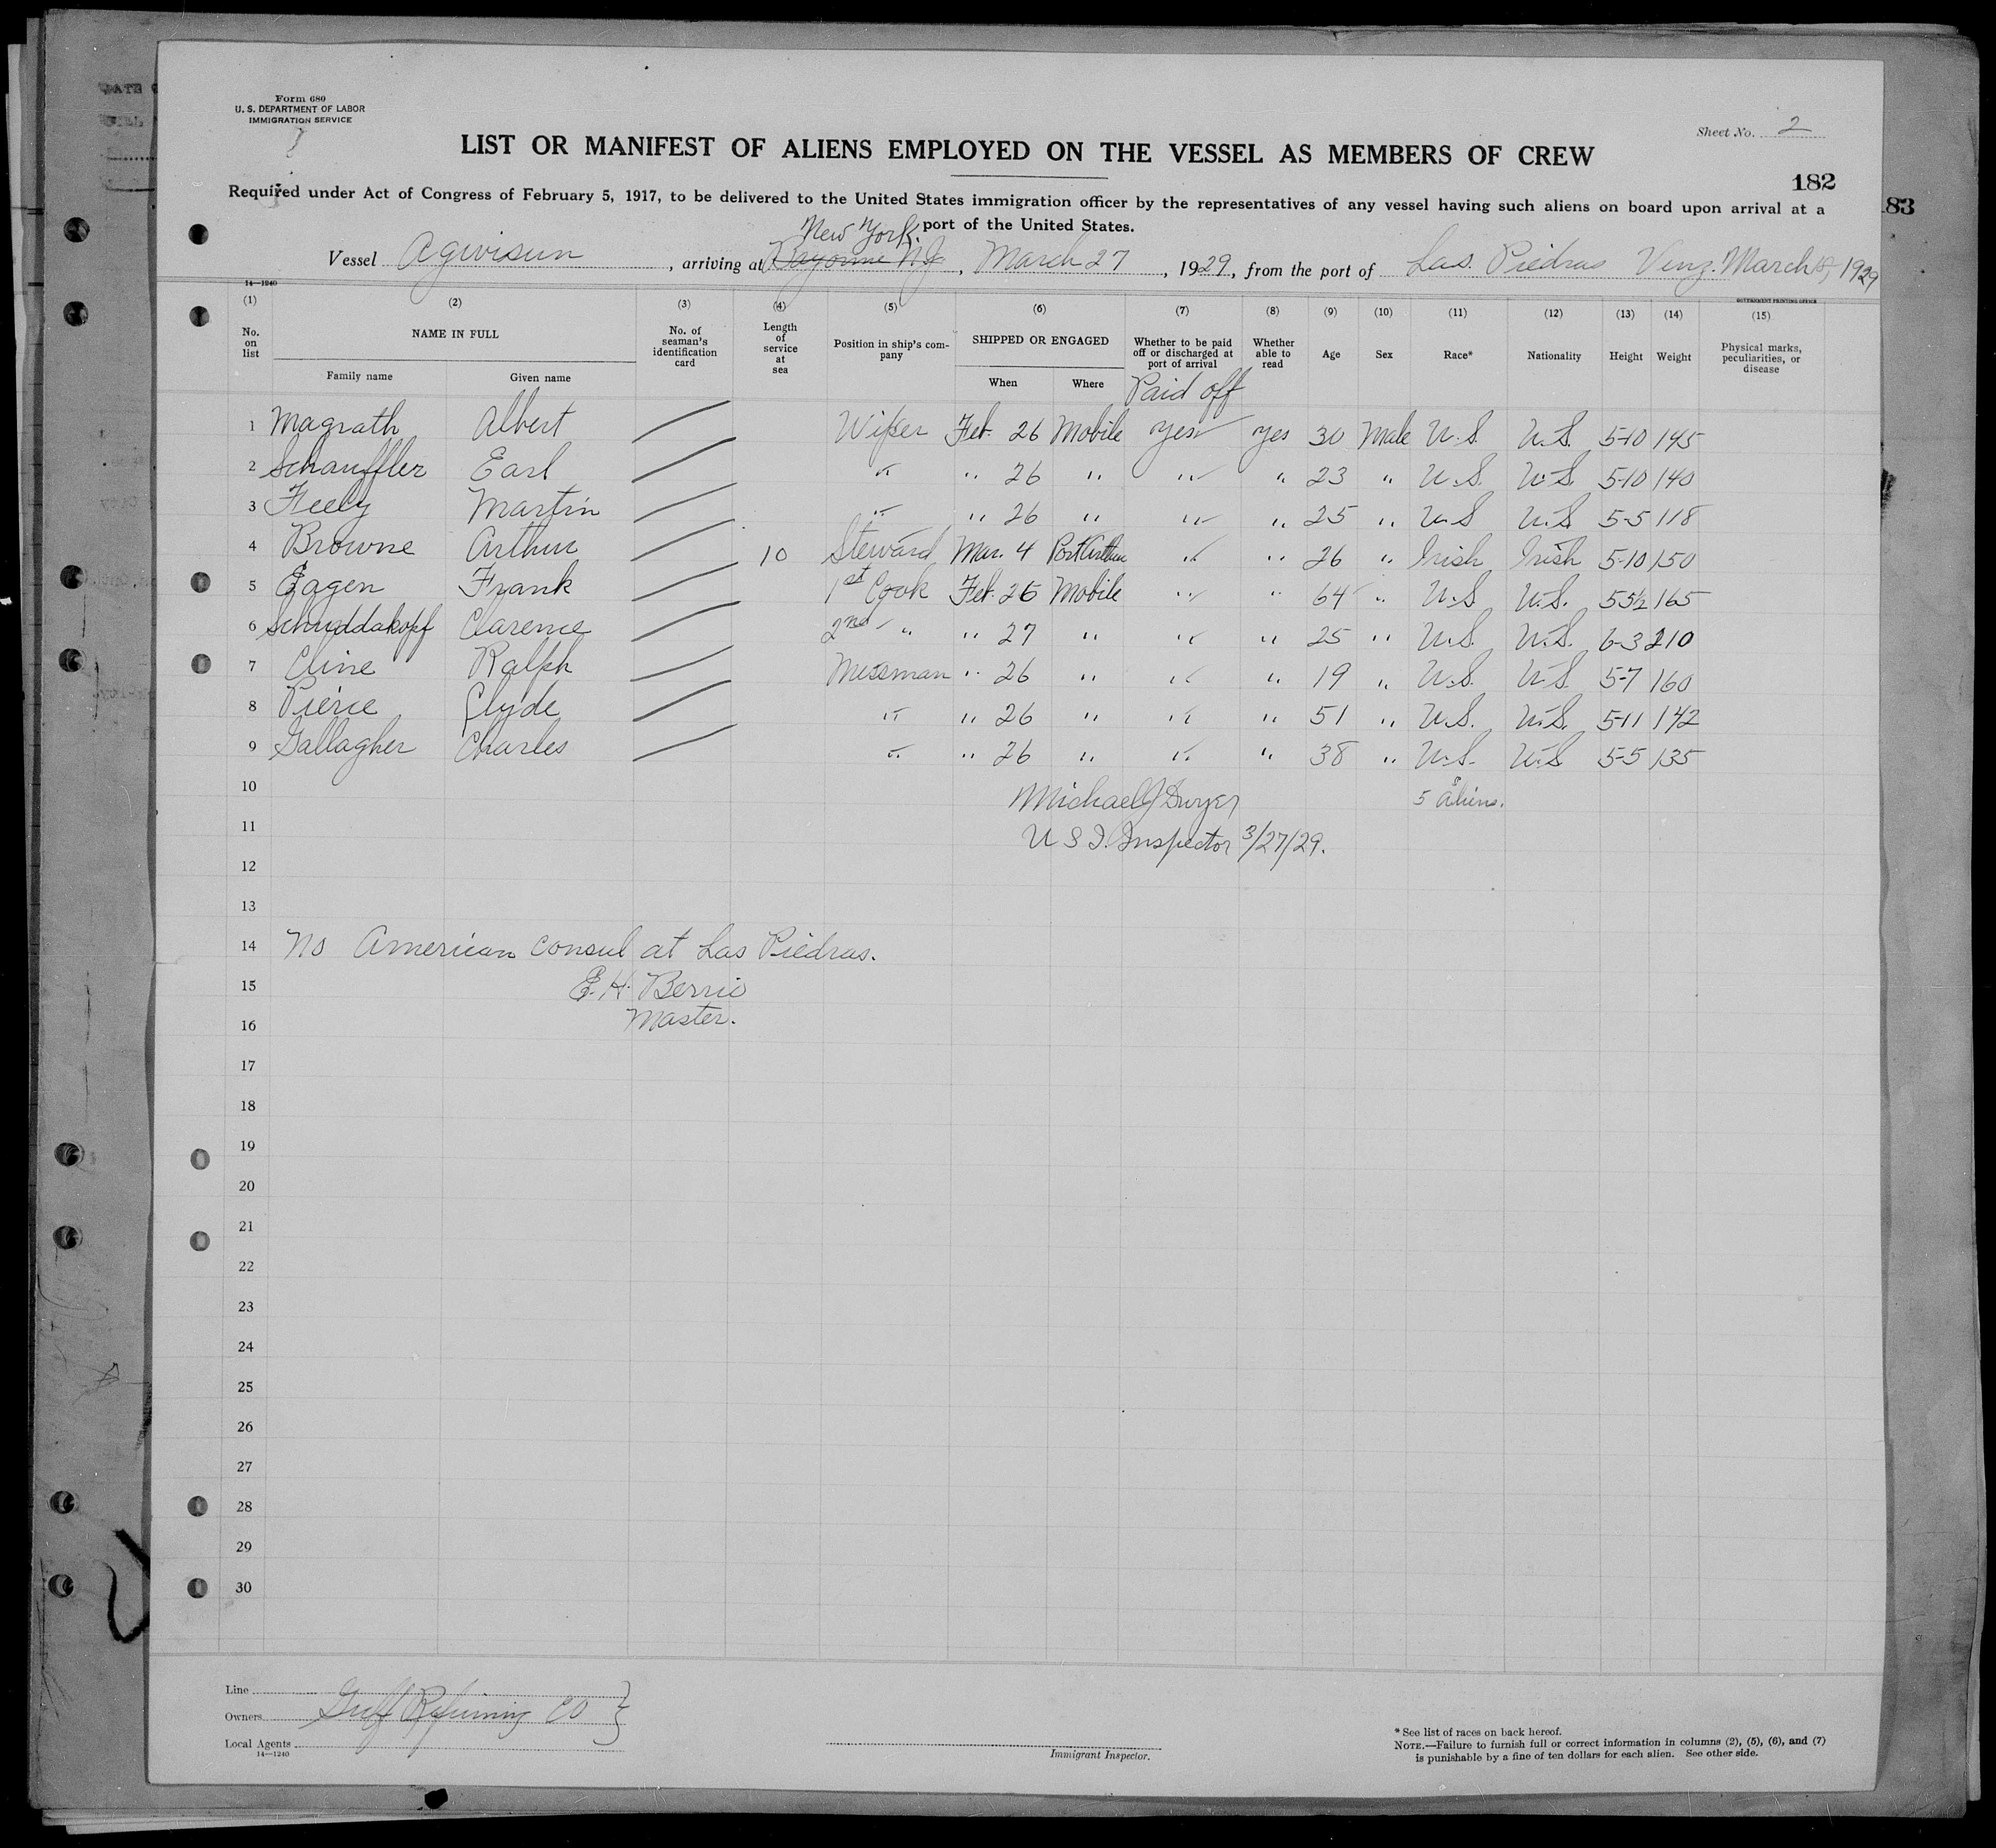 Form 680
U. S. DEPARTMENT OF LABOR
IMMIGRATION SERVICE
Sheet No. 2
LIST OR MANIFEST OF ALIENS EMPLOYED ON THE VESSEL AS MEMBERS OF CREW
182
83
Required under Act of Congress of February 5, 1917, to be delivered to the United States immigration officer by the representatives of any vessel having such aliens on board upon arrival at a
port of the United States.
New York
Vessel Agwisun, arriving at Bayonne NJ, March 27, 1929, from the port of Las Piedras Venz. March 1929
14—1240
GOVERNMENT PRINTING OFFICE
(1) (2) (3) (4) (5) (6) (7) (8) (9) (10) (11) (12) (13) (14) (15)
No. on list NAME IN FULL Family name Given name No. of seaman's identification card Length of service at sea Position in ship's company SHIPPED OR ENGAGED When Where Whether to be paid off or discharged at port of arrival Whether able to read Age Sex Race* Nationality Height Weight Physical marks, peculiarities, or disease
Paid off
1 Magrath Albert Wiper Feb. 26 Mobile yes yes 30 Male U.S. U.S. 5-10 145
2 Schauffler Earl " " 26 " " " 23 " U.S. U.S. 5-10 140
3 Feely Martin " " 26 " " " 25 " U.S U.S 5-5 118
4 Browne Arthur 10 Steward Mar. 4 Port Arthur " " 26 " Irish Irish 5-10 150
5 Eagen Frank 1st Cook Feb. 26 Mobile " " 64 " U.S U.S. 5 5½ 165
6 Schuddakopf Clarence 2nd " " 27 " " " 25 " U.S. U.S. 6-3 210
7 Cline Ralph Messman " 26 " " " 19 " U.S. U.S. 5-7 160
8 Pierce Clyde " " 26 " " " 51 " U.S. U.S. 5-11 142
9 Gallagher Charles " " 26 " " " 38 " U.S. U.S 5-5 135
10 Michael J Dwyer 5 aliens.
11 U S I. Inspector 3/27/29.
12
13
14 No American Consul at Las Piedras.
15 E. H. Berrie
16 Master.
17
18
19
20
21
22
23
24
25
26
27
28
29
30
Line
Owners Gulf Refining Co
Local Agents
14—1240
Immigrant Inspector.
* See list of races on back hereof.
NOTE.—Failure to furnish full or correct information in columns (2), (5), (6), and (7)
is punishable by a fine of ten dollars for each alien. See other side.